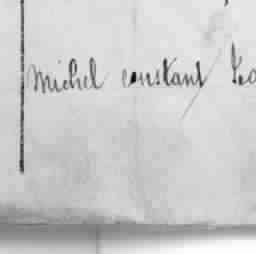 Michel constant